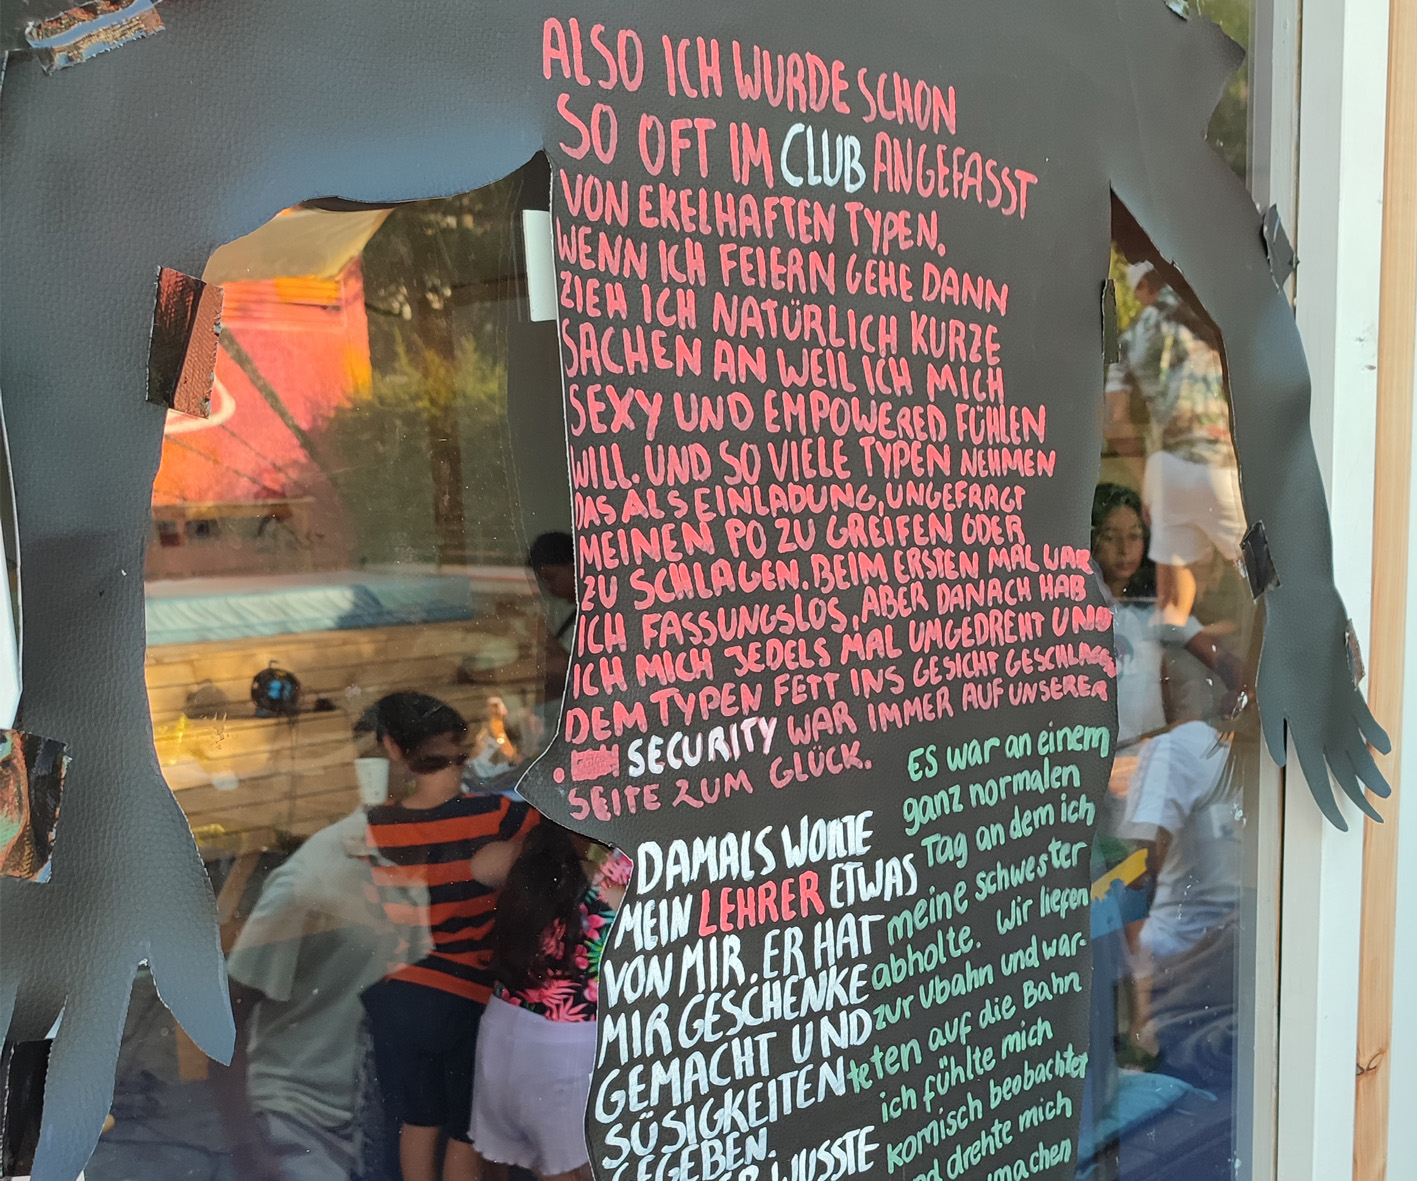 ALSO ICH WURDE SCHON
SO OFT IM CLUB ANGEFASST
VON EKELHAFTEN TYPEN.
WENN ICH FEIERN GEHE DANN
ZIEH ICH NATÜRLICH KURZE
SACHEN AN WEIL ICH MICH
SEXY UND EMPOWERED FÜHLEN
WILL. UND SO VIELE TYPEN NEHMEN
DAS ALS EINLADUNG, UNGEFRAGT
MEINEN PO ZU GREIFEN ODER
ZU SCHLAGEN. BEIM ERSTEN MAL WAR
ICH FASSUNGSLOS, ABER DANACH HAB
ICH MICH JEDELS MAL UMGEDREHT UND
DEM TYPEN FETT INS GESICHT GESCHLAGEN
. SECURITY WAR IMMER AUF UNSERER
SEITE ZUM GLÜCK.
DAMALS WOLLTE
MEIN LEHRER ETWAS
VON MIR. ER HAT
MIR GESCHENKE
GEMACHT UND
SÜSIGKEITEN
GEGEBEN.
WUSSTE
ES war an einem
ganz normalen
Tag an dem ich
meine schwester
abholte. Wir liefen
zur Ubahn und war-
teten auf die Bahn
ich fühlte mich
komisch beobachtet
drehte mich